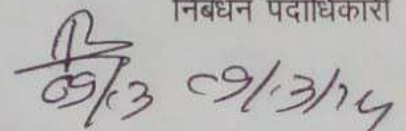 निबंधन पदाधिकारी
09/3 09/3/24